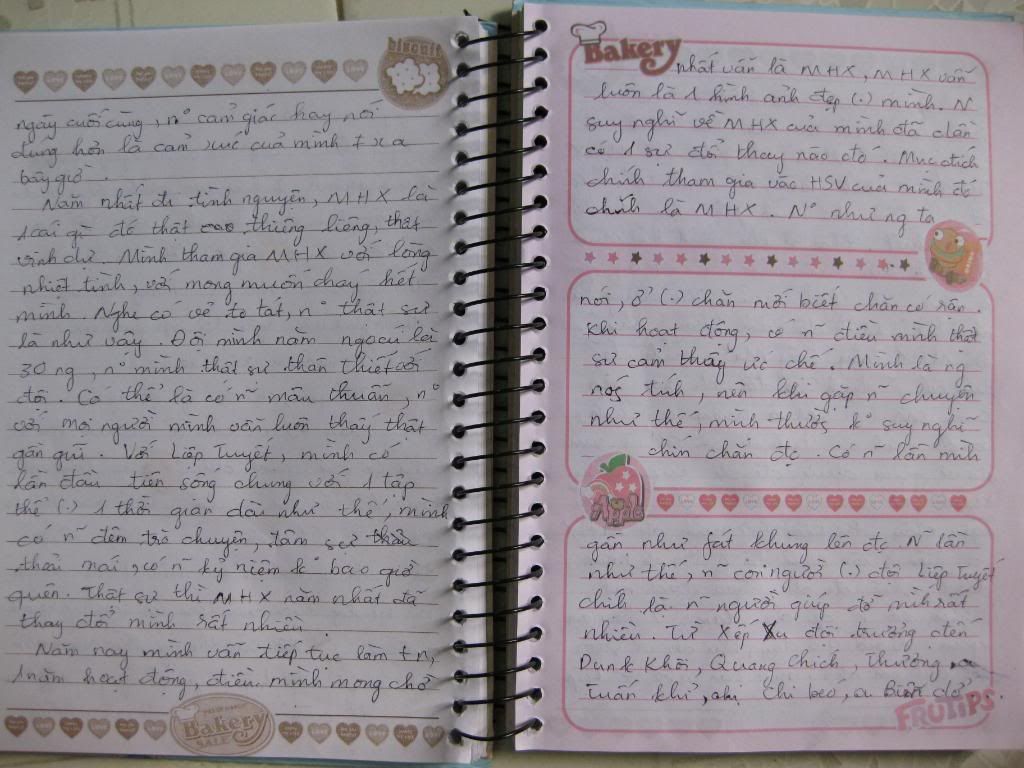 biscuit
ngày cuối cùng, n° cảm giác hay nói
đúng hơn là cảm xúc của mình
bây giờ.
Năm nhất đi tình nguyện, MHX là
1 cái gì đó thật thiêng liêng, thật
vinh dự. Mình tham gia MHX với lòng
nhiệt tình, với mong muốn cháy hết
mình. Nghe có vẻ to tát, n° thật sự
là như vậy. Đội mình năm ngoái là
30 ng, n° mình thật sự thân thiết với
đội. Có thể là có n~ mâu thuẫn, n°
với mọi người mình vẫn luôn thấy thật
gần gũi. Với Liệp Tuyết, mình có
lần đầu tiên sống chung với 1 tập
thể (.) 1 thời gian dài như thế, mình
có n~ đêm trò chuyện, tâm sự
thoải mái, có n~ kỷ niệm k° bao giờ
quên. Thật sự thì MHX năm nhất đã
thay đổi mình rất nhiều.
Năm nay mình vẫn tiếp tục làm tn,
1 năm hoạt động, điều mình mong chờ
Bakery
SALE
Bakery
nhất vẫn là MHX, MHX vẫn
luôn là 1 hình ảnh đẹp (.) mình. N°
suy nghĩ về MHX của mình đã dần
có 1 sự đổi thay nào đó. Mục đích
chính tham gia vào HSV của mình đó
chính là MHX. N° như ng ta
nói, ở (.) chăn mới biết chăn có rận.
Khi hoạt động, có n~ điều mình thật
sự cảm thấy ức chế. Mình là ng
nóng tính, nên khi gặp n~ chuyện
như thế, mình thường k° suy nghĩ
chín chắn đc. Có n~ lần mình
gần như fát khùng lên đc. N~ lần
như thế, n~ con người (.) đội Liệp Tuyết
chính là n~ người giúp đỡ mình rất
nhiều. Từ Xếp Xu đội trưởng đến
Dung Khôi, Quang chịch, Thưởng,
Tuấn khỉ, chị Chi béo, a Bình
FRUTIPS